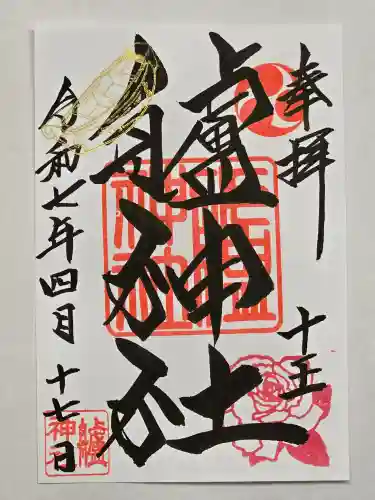 奉拝
十五
艫神社
令和七年四月十七日
艫神社
艫神社